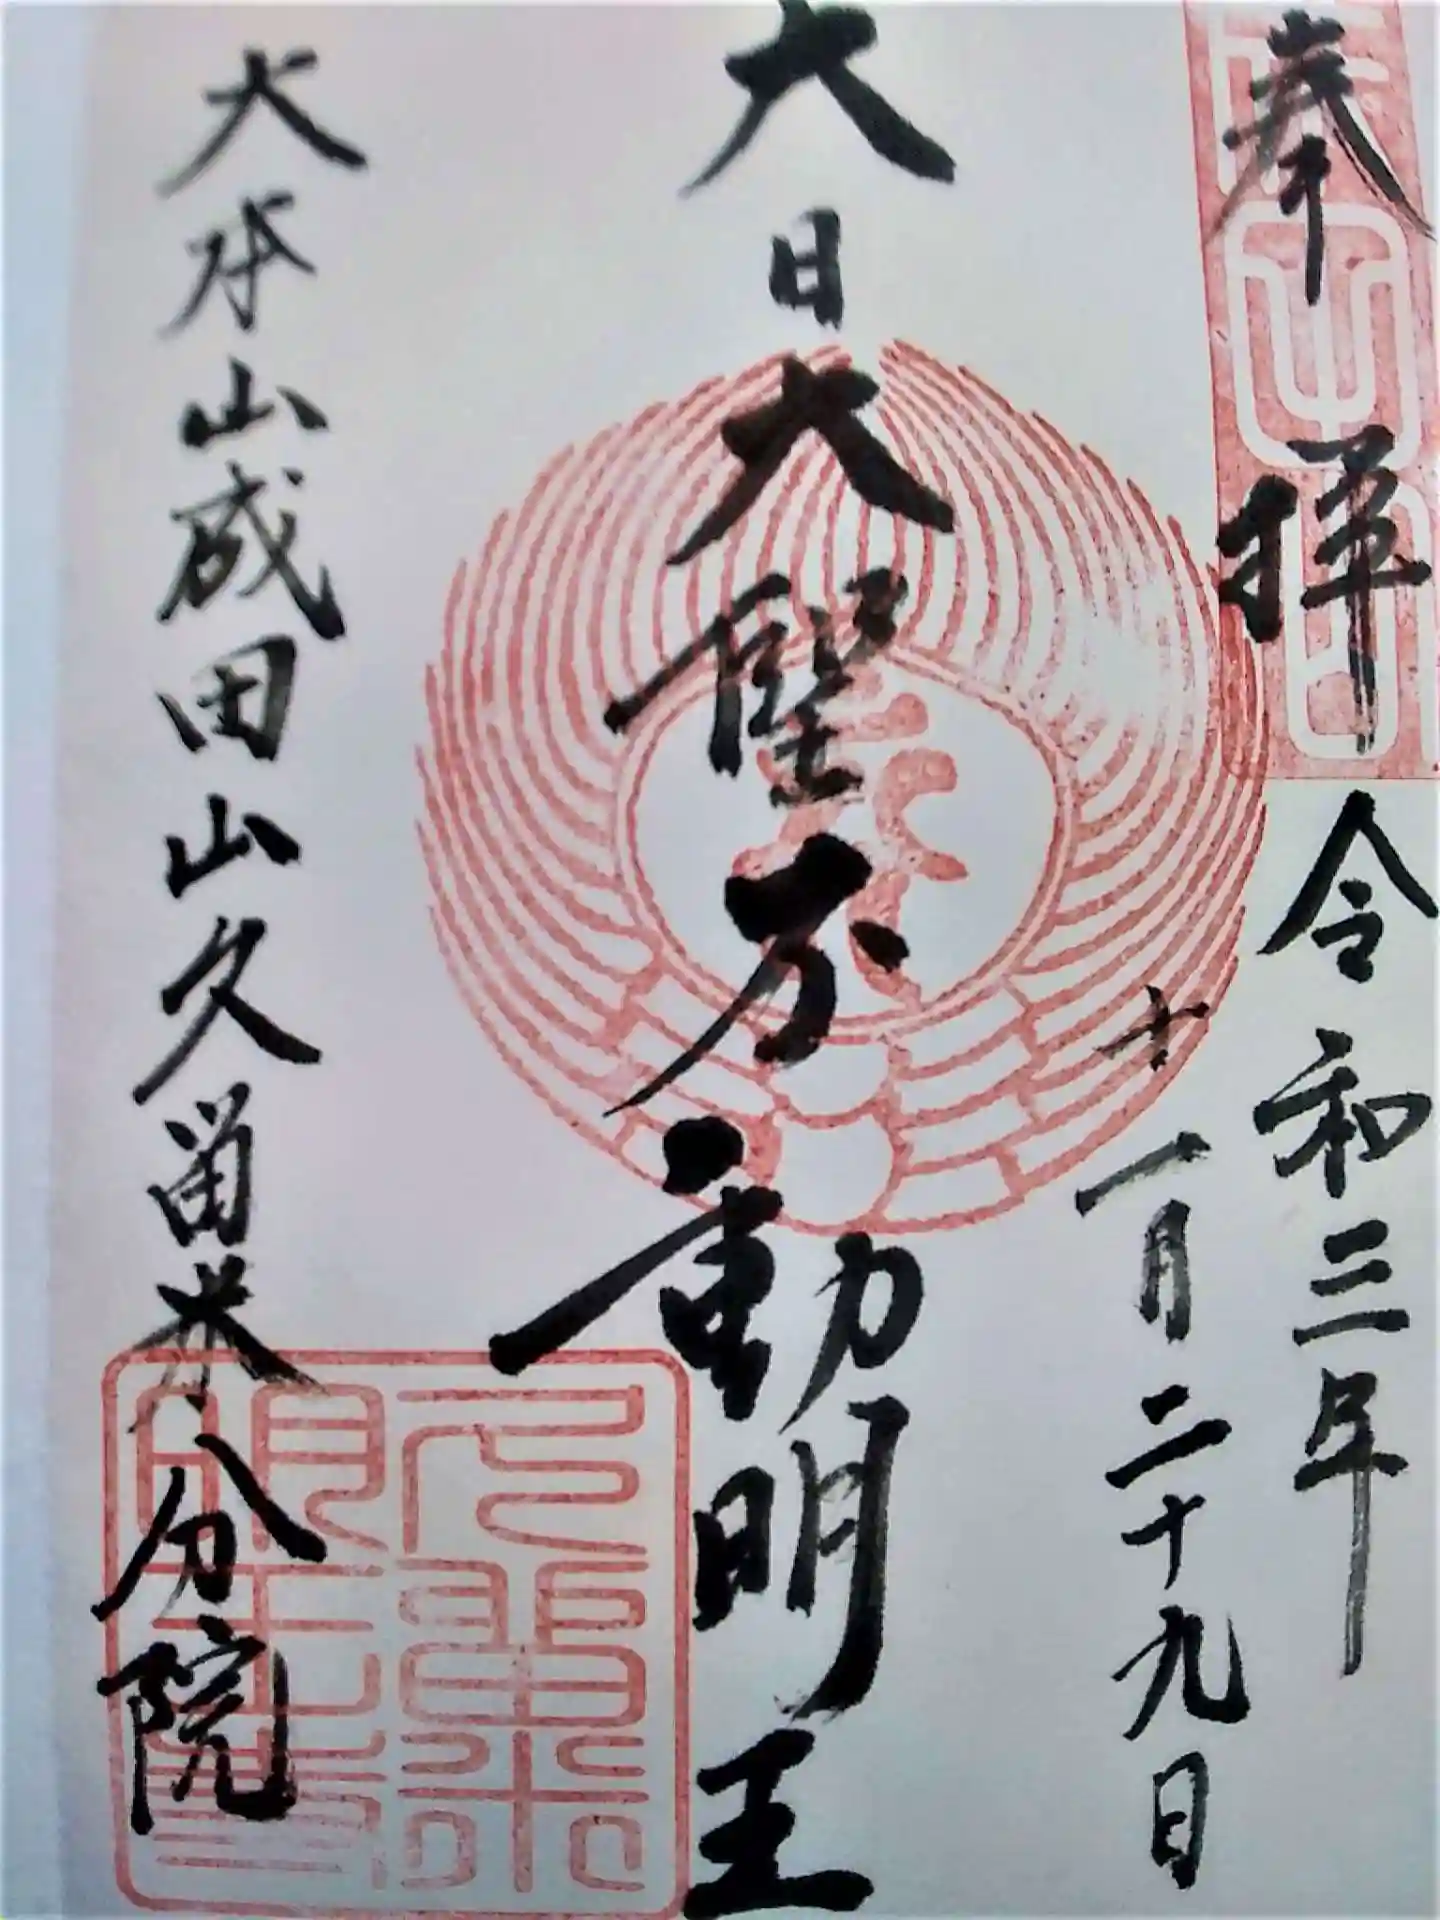 奉拝
令和三年
十一月二十九日
大日大聖不動明王
大本山成田山久留米分院